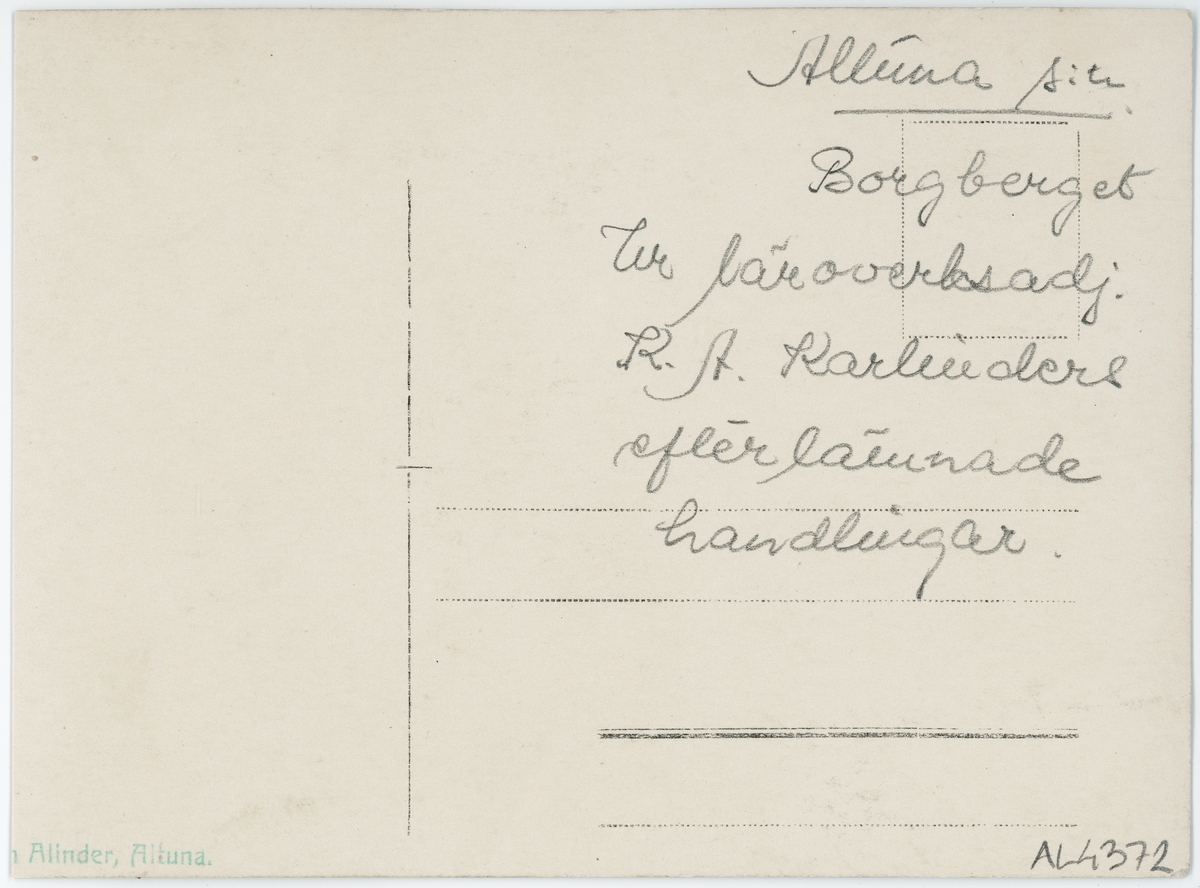 Altuna s:n
Borgberget
Ur läroverksadj.
K. A. Karlinders
efterlämnade
handlingar.
n Alinder, Altuna.
AL4372